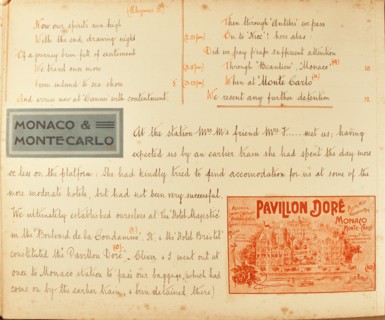 (Chapman's)
Now our spirits run high
With the end drawing nigh
Of a journey
We
town intend to see show
And arrive now at Cannes with contentment.
Then through 'Antibes' we pass
On to 'Nice'! here alas
Did we pay proper sufficient attention
Through 'Beaulieu' 'Monaco'
When at 'Monte Carlo'
We resent any further detention
MONACO &
MONTE-CARLO
At the station Mrs. M's friend Mr. F..... met us; having
expected us by an earlier train she had spent the day more
or less on the platform. She had kindly tried to find accomodation for us at some of the
more moderate hotels, but had not been very successful.
We ultimately established ourselves at the 'Hotel Majestic'
in the "Boulevard de la Condamine", &, the 'Hotel Bristol'
constituted the 'Pavillon Doré'. Oliver & I went out at
once to Monaco station to pass our baggage, which had
come on by the earlier train, & been detained there)
PAVILLON DORÉ
MONACO
MONTE-CARLO